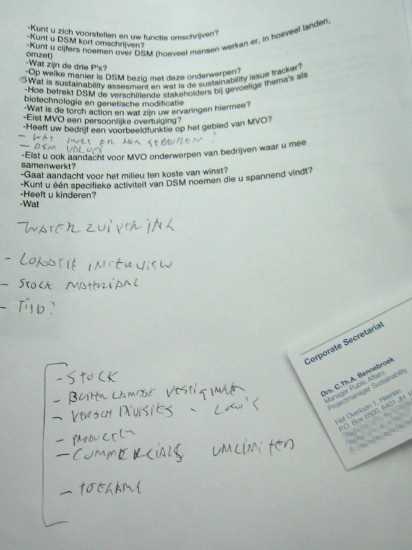 -Kunt u zich voorstellen en uw functie omschrijven?
-Kunt u DSM kort omschrijven?
-Kunt u cijfers noemen over DSM (hoeveel mensen werken er, in hoeveel landen,
omzet)
-Wat zijn de drie P's?
-Op welke manier is DSM bezig met deze onderwerpen?
Wat is sustainability assesment en wat is de sustainability issue tracker?
-Hoe betrekt DSM de verschillende stakeholders bij gevoelige thema's als
biotechnologie en genetische modificatie
-Wat is de torch action en wat zijn uw ervaringen hiermee?
-Eist MVO een persoonlijke overtuiging?
-Heeft uw bedrijf een voorbeeldfunktie op het gebied van MVO?
- WAT MOET ER NOG GEBEUREN?
- DSM
-Eist u ook aandacht voor MVO onderwerpen van bedrijven waar u mee
samenwerkt?
-Gaat aandacht voor het milieu ten koste van winst?
-Kunt u één specifieke activiteit van DSM noemen die u spannend vindt?
-Heeft u kinderen?
-Wat
WATERZUIVERING
- LOKATIE INTERVIEW
- STOCK MATERIAAL
- TIJD?
- STOCK
- BUITENLANDSE VESTIGINGEN
- LOGO'S
- PRODUCTEN
- COMMERCIALS UNLIMITED
- TOEKOMST
Corporate Secretariat
Drs. C.Th.A. Bennebroek
Manager Public Affairs
Projectmanager Sustainability
Het Overloon 1, Heerlen
P.O. Box 6500, 6401 JH